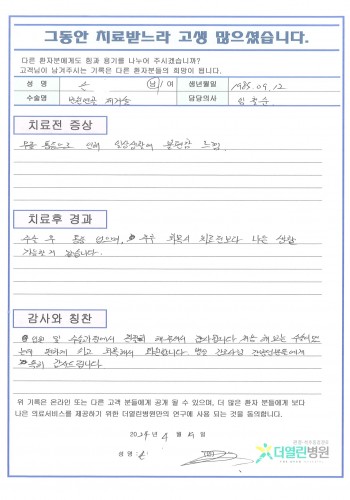 그동안 치료받느라 고생 많으셨습니다.
다른 환자분에게도 힘과 용기를 나누어 주시겠습니까?
고객님이 남겨주시는 기록은 다른 환자분들의 희망이 됩니다.
성 명 손 남/여 생년월일 1985.09.12
수술명 제거술 담당의사
치료전 증상
무릎 통증으로 인해 일상생활에 불편함 느낌.
치료후 경과
수술 후 통증 없으며, 추후 회복시 치료전보다 나은 생활
가능할 거 같습니다.
감사와 칭찬
입원 및 수술과정에서 감사합니다. 처음 해 보는 수술이었
는데 편하게 하고 회복해서 퇴원합니다. 병동 간호사님 간병인분들에게
특히 감사드립니다
위 기록은 온라인 또는 다른 고객 분들에게 공개 될 수 있으며, 더 많은 환자 분들에게 보다
나은 의료서비스를 제공하기 위한 더열린병원만의 연구에 사용 되는 것을 동의합니다.
2024년 4월 15일
성명 : 손 (인)
더열린병원